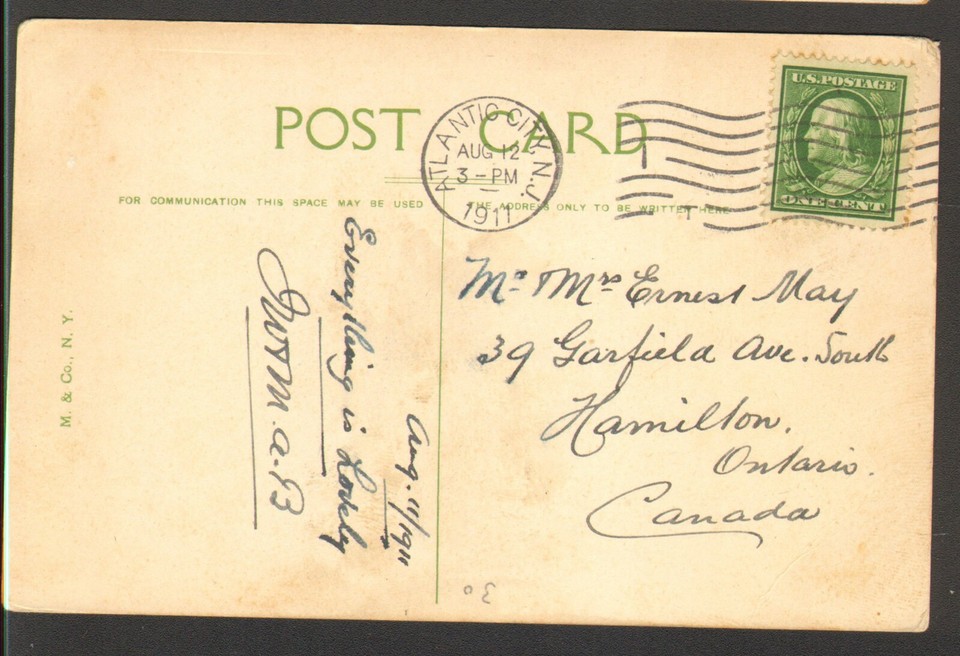 POST CARD
ATLANTIC CITY, N.J.
AUG 12
3-PM
1911
U.S. POSTAGE
ONE CENT
FOR COMMUNICATION THIS SPACE MAY BE USED
THE ADDRESS ONLY TO BE WRITTEN HERE
M. & Co., N. Y.
Aug. 11/1911
Everything is Lovely
Mr & Mrs Ernest May
39 Garfield Ave. South
Hamilton.
Ontario.
Canada
30